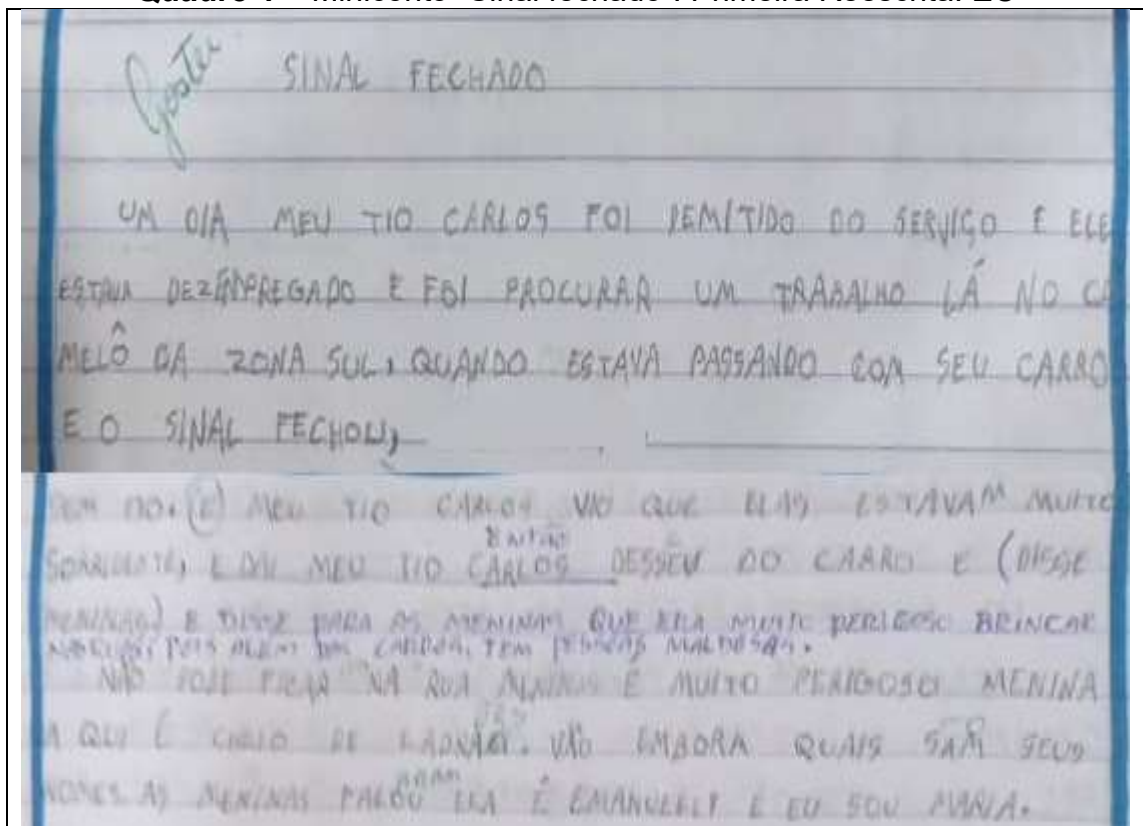 Gostei SINAL FECHADO
UM DIA MEU TIO CARLOS FOI DEMITIDO DO SERVIÇO E ELE
ESTAVA DEZEMPREGADO E FOI PROCURAR UM TRABALHO LÁ NO CA
MELÔ DA ZONA SUL, QUANDO ESTAVA PASSANDO COM SEU CARRO
E O SINAL FECHOU,
MEU TIO CARLOS VIO QUE ELAS ESTAVAM MUITO
E DAI MEU TIO CARLOS DESSEU DO CARRO E (DISSE
MENINAS) E DISSE PARA AS MENINAS QUE ERA MUITO PERIGOSO BRINCAR
POIS ALEM DOS CARROS, TEM PESSOAS MALDOSAS.
NÃO PODE FICAR NA RUA MENINAS É MUITO PERIGOSO MENINA
A QUI É CHEIO DE VÃO EMBORA QUAIS SAM SEUS
NOMES AS MENINAS FALOU ELA É EMANUELLY E EU SOU MARIA.